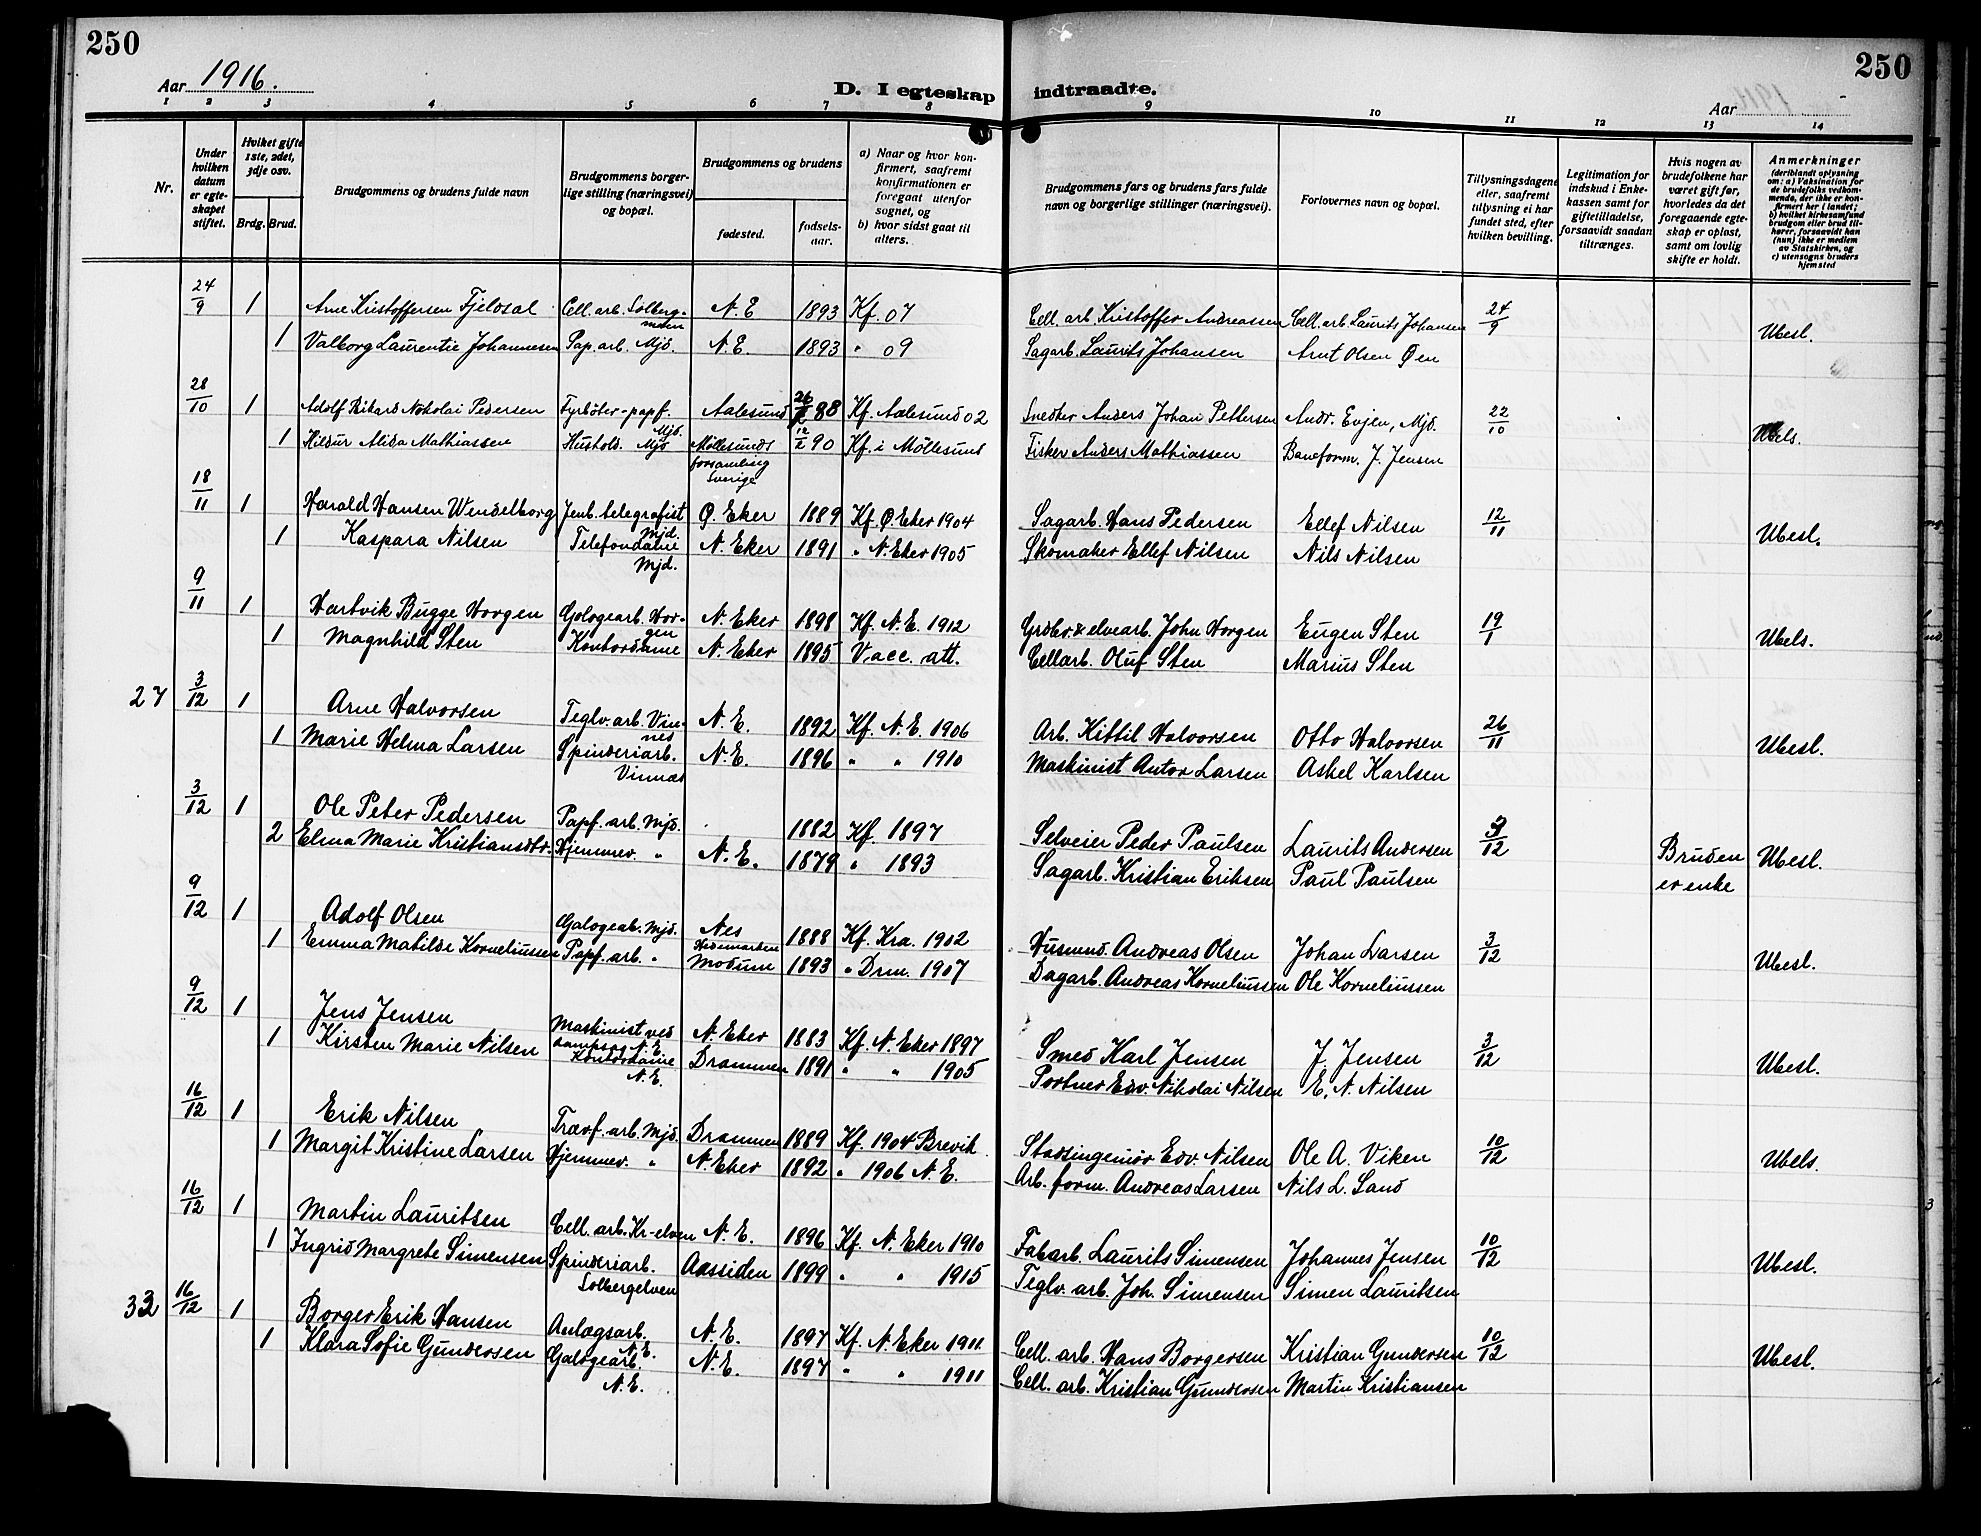 250
Aar 1916.
D. I egteskap
1 2 3 4 5 6 7 8
Nr.
Under hvilken datum er egteskapet stiftet.
Hvilket gifte 1ste, 2det, 3dje osv.
Brdg. Brud.
Brudgommens og brudens fulde navn
Brudgommens borgerlige stilling (næringsvei) og bopæl.
Brudgommens og brudens
fødested.
fødselsaar.
a) Naar og hvor konfirmert, saafremt konfirmationen er foregaat utenfor sognet, og
b) hvor sidst gaat til alters.
24/9 1 Arne Kristoffersen Fjeldsal Cell. arb. Solbergmoen N. E 1893 Kf. 07
1 Valborg Laurentie Johannesen Pap. arb. Mjd. N. E. 1893 " 09
28/10 1 Adolf Rikard Nikolai Pedersen Fyrbøter-papf. Mjd. Aalesund 88 Kf. Aalesund 02
1 Hildur Alida Mathiassen Hushold. Mjd Møllesunds forsamling Sverige 90 Kf. i Møllesund
18/11 1 Harald Hansen Wendelborg Jenb. telegrafist Mjd. Ø. Eker 1889 Kf. Ø. Eker 1904
1 Kaspara Nilsen Telefondame Mjd. N. Eker 1891 " N. Eker 1905
9/11 1 Hartvik Bugge Horgen Galogearb. Horgen N. Eker 1898 Kf. N. E. 1912
1 Magnhild Sten Kontordame N. Eker 1895 Vacc. att.
27 3/12 1 Arne Halvorsen Teglv. arb. Vinnes N. E. 1892 Kf. N. E. 1906
1 Marie Helma Larsen Spinderiarb. Vinnæs N. E. 1896 " " 1910
3/12 1 Ole Peter Pedersen Papf. arb. Mjd. 1882 Kf. 1897
2 Elma Marie Kristiansdtr. Hjemmev. " N. E. 1879 " 1893
9/12 1 Adolf Olsen Galogearb. Mjd. Nes Hedemarken 1888 Kf. Kra. 1902
1 Emma Matilde Korneliussen Papf. arb. " Modum 1893 " Drm. 1907
9/12 1 Jens Jensen Maskinist ved dampsag N. E. N. Eker 1883 Kf. N. Eker 1897
1 Kirsten Marie Nilsen Kontordame N. E. Drammen 1891 " " 1905
16/12 1 Erik Nilsen Trævf. arb. Mjd. Drammen 1889 Kf. 1904 Brevik
1 Margit Kristine Larsen Hjemmev. " N. Eker 1892 " 1906 N. E.
16/12 1 Martin Lauritsen Cell. arb. Kr-elven N. E. 1896 Kf. N. Eker 1910
1 Ingrid Margrete Simensen Spinderiarb. Solbergelven Aassiden 1899 " " 1915
33 16/12 1 Borger Erik Hansen Anlægsarb. N. E. N. E. 1897 Kf. N. Eker 1911
1 Klara Sofie Gundersen Galogearb. N. E. N. E. 1897 " " 1911
250
indtraadte.
Aar
9 10 11 12 13 14
Brudgommens fars og brudens fars fulde navn og borgerlige stillinger (næringsvei).
Forlovernes navn og bopæl.
Tillysningsdagene eller, saafremt tillysning ei har fundet sted, efter hvilken bevilling.
Legitimation for indskud i Enkekassen samt for giftetilladelse, forsaavidt saadan tiltrænges.
Hvis nogen av brudefolkene har været gift før, hvorledes da det foregaaende egteskap er opløst, samt om lovlig skifte er holdt.
Anmerkninger (deriblandt oplysning om: a) Vaksination for de brudefolks vedkommende, der ikke er konfirmert her i landet; b) hvilket kirkesamfund brudgom eller brud tilhører, forsaavidt han (hun) ikke er medlem av Statskirken, og c) utensogns bruders hjemsted
Cell. arb. Kristoffer Andreassen Cell. arb. Laurits Johansen 24/9 Ubesl.
Sagarb. Laurits Johansen Arnt Olsen Øen
Snedker Anders Johan Pettersen Andr. Evjen, Mjd. 22/10 Ubels.
Fisker Anders Mathiassen Baneform. J. Jensen
Sagarb. Hans Pedersen Ellef Nilsen 12/11 Ubesl.
Skomaker Ellef Nilsen Nils Nilsen
Grdbr. & elvearb. John Horgen Eugen Sten 19/1 Ubels.
Cellarb. Oluf Sten Marius Sten
Arb. Kittil Halvorsen Otto Halvorsen 26/11 Ubesl.
Maskinist Anton Larsen Askel Karlsen
Selveier Peder Paulsen Laurits Andersen 3/12 Bruden er enke Ubesl.
Sagarb. Kristian Eriksen Paul Paulsen
Husmnd. Andreas Olsen Johan Larsen 3/12 Ubesl.
Dagarb. Andreas Korneliussen Ole Korneliussen
Smed Karl Jensen J. Jensen 3/12 Ubesl.
Portner Edv. Nikolai Nilsen E. N. Nilsen
Stadsingeniør Edv. Nilsen Ole A. Viken 10/12 Ubels.
Arb. form. Andreas Larsen Nils L. Sand
Fabarb. Laurits Simensen Johannes Jensen 10/12 Ubesl.
Teglv. arb. Joh. Simensen Simen Lauritsen
Cell. arb. Hans Borgersen Kristian Gundersen 10/12 Ubesl.
Cell. arb. Kristian Gundersen Martin Kristiansen